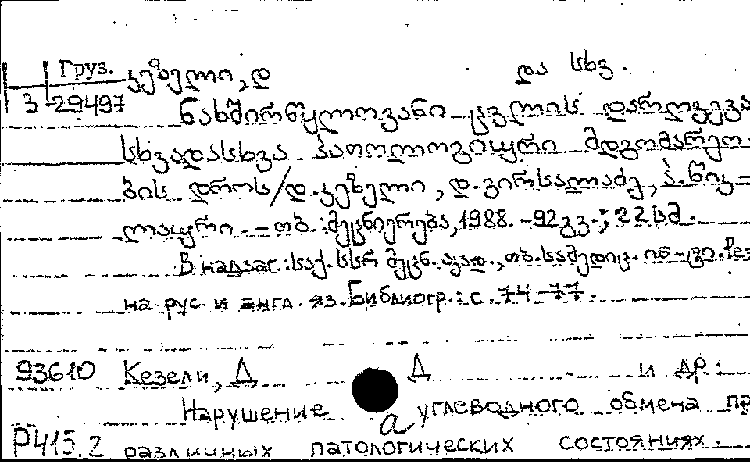 Груз. კეზელი, დ და სხვ.
3-29497 ნახშირწყლოვანი ცვლის დარღვევა
სხვადასხვა პათოლოგიური მდგომარეო-
ბის დროს/დ. კეზელი, დ. გირსალაძე, პ. წიკ-
ლაური. - თბ.: მეცნიერება, 1988. - 92 გვ.; 22 სმ.
В надзаг.: საქ. სსრ მეცნ. აკად., თბ. სამედიც. ინ-ტი. Рез.
на рус и англ. яз. Библиогр.: с. 74-77.
93610 Кезели, Д Д и др.
Нарушение углеводного обмена пр
P415.2 различных патологических состояниях.